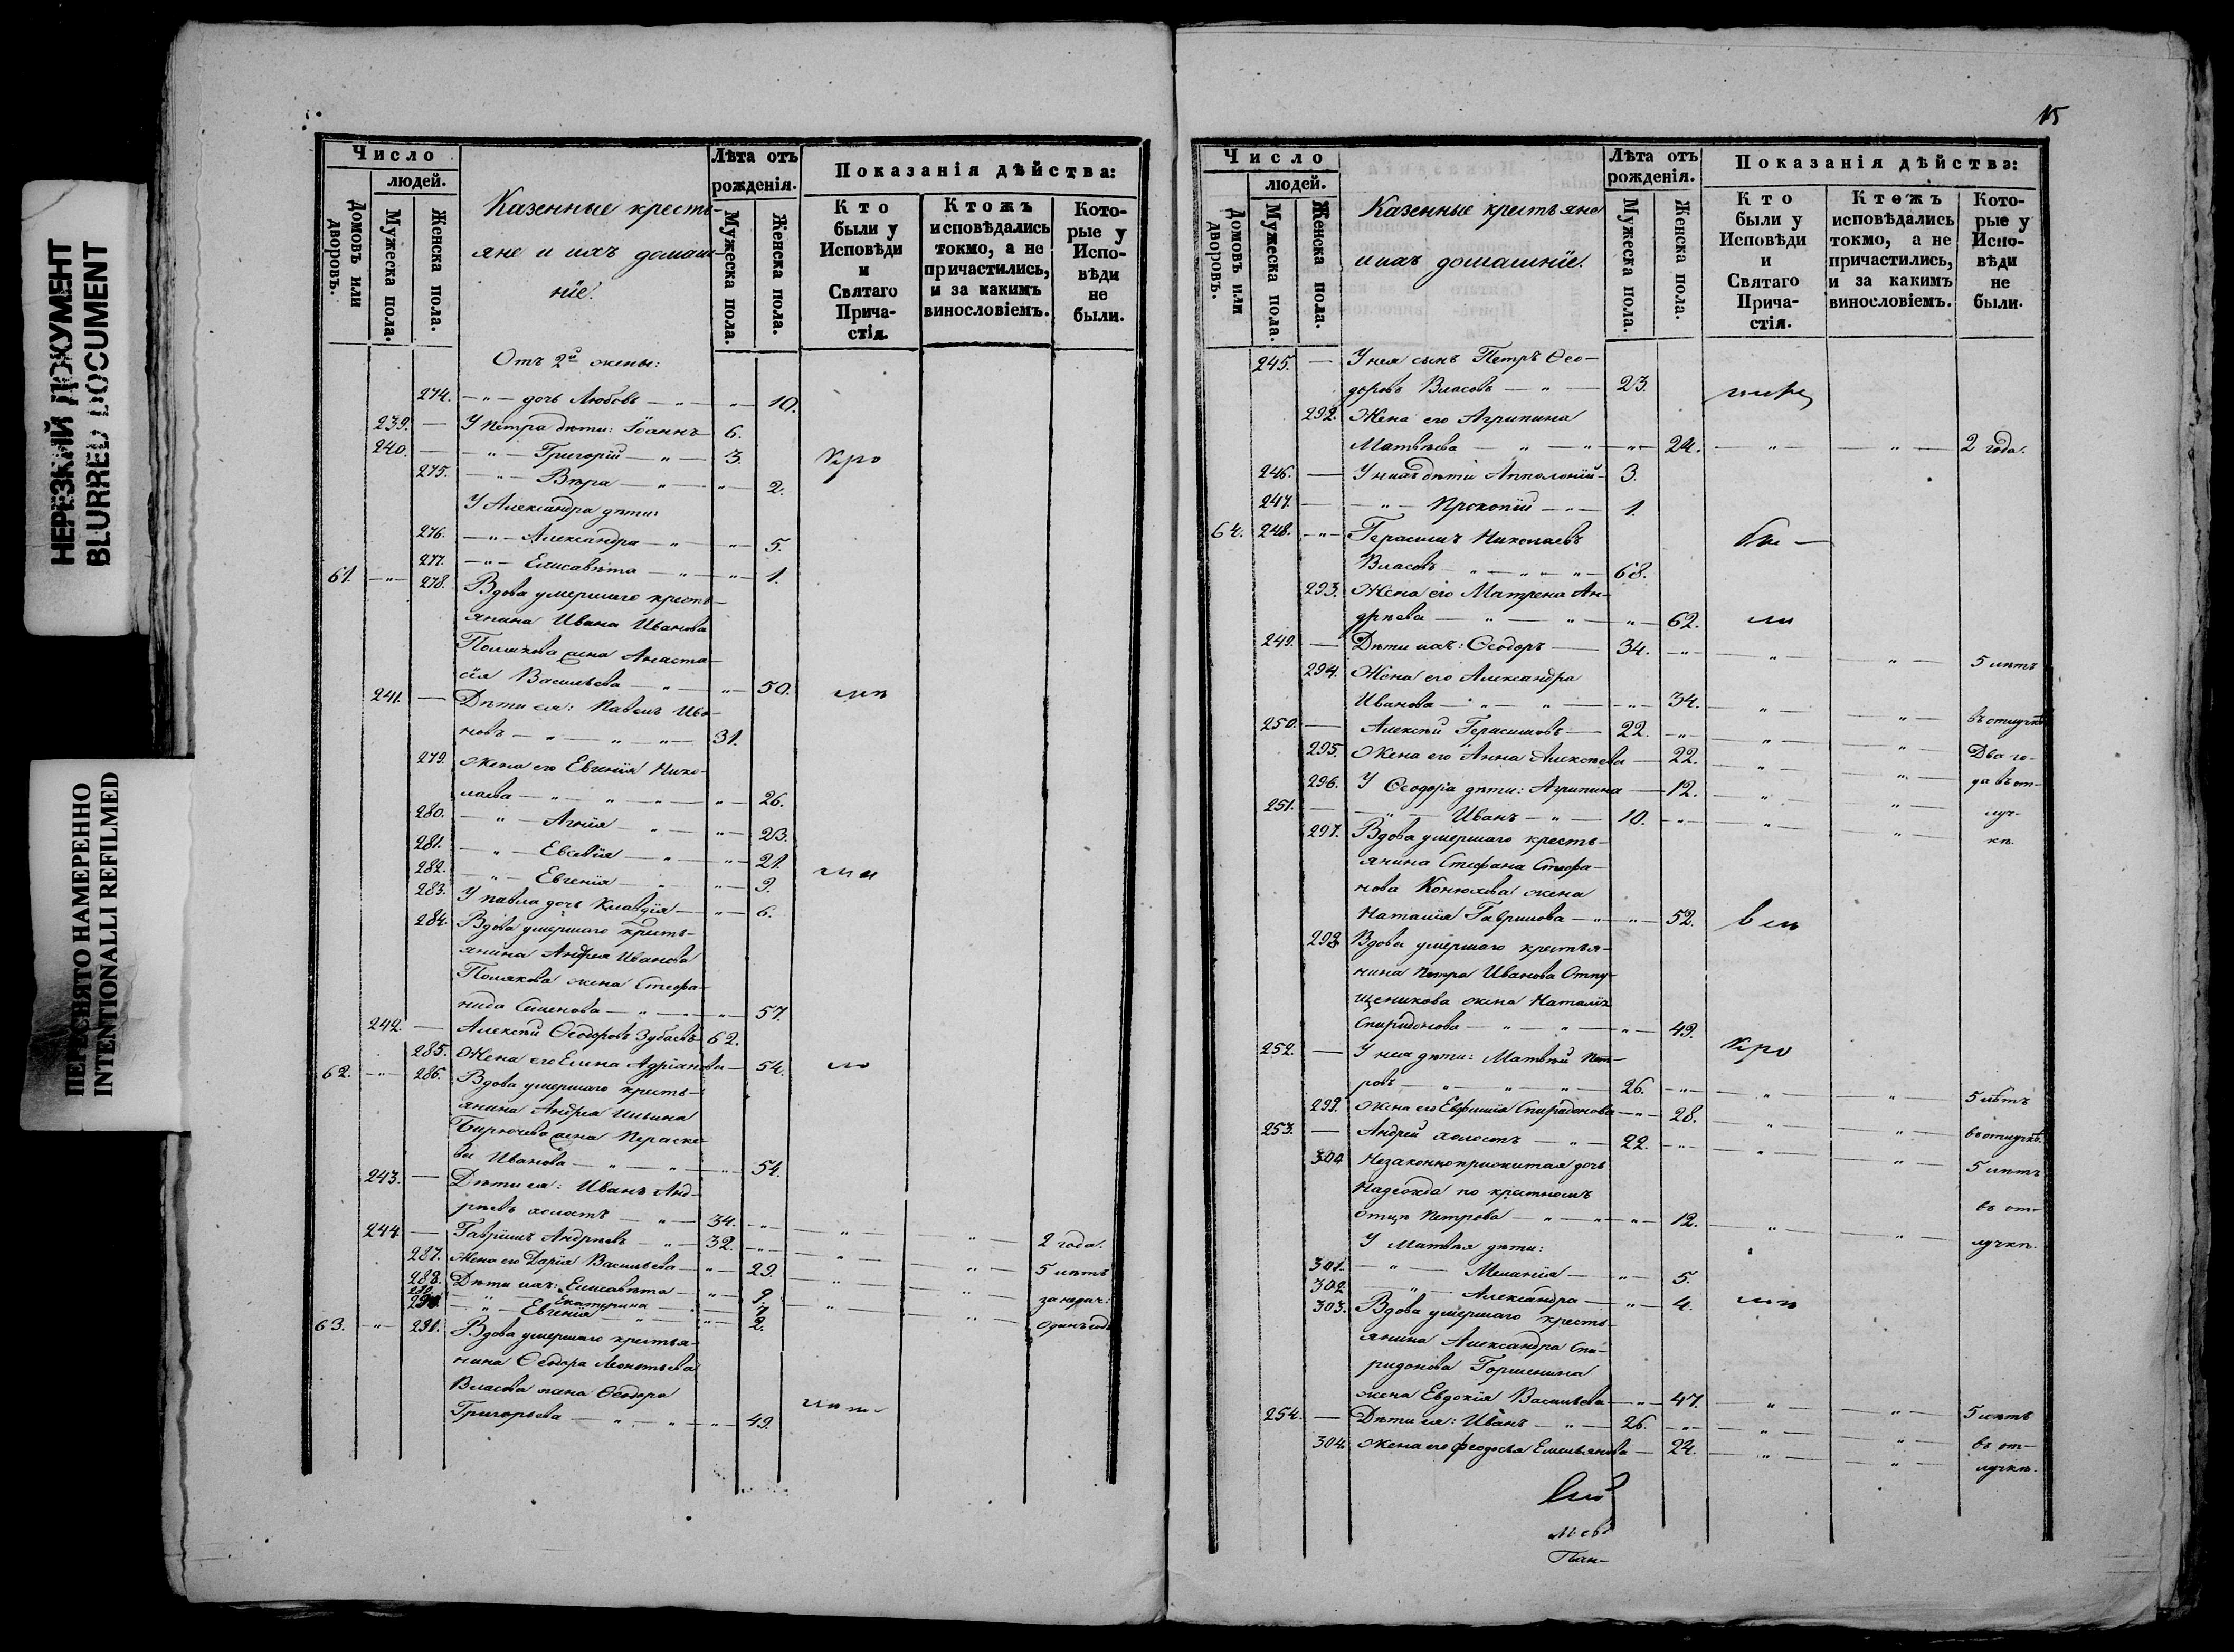 НЕРЕЗКИЙ ДОКУМЕНТ
BLURRED DOCUMENT
ПЕРЕСНЯТО НАМЕРЕННО
INTENTIONALLI REFILMED
Число
людей.
Домовъ или дворовъ.
Мужеска пола.
Женска пола.
Казенные кресть-
яне и ихъ домаш-
ніе.
Лѣта отъ
рожденія.
Мужеска пола.
Женска пола.
Показанія дѣйства:
Кто были у Исповѣди и Святаго Прича-стія.
Ктожъ исповѣдались токмо, а не причастились, и за какимъ винословіемъ.
Кото-рые у Испо-вѣди не были.
Отъ 2й жены:
274. — " — дочь Любовь — " — " — 10.
239. — У Петра дѣти: Іоаннъ 6.
240. — " — Григорій — " — 3.
275. — " — Вѣра — " — " — 2.
У Александра дѣти:
276. — " — Александра — " — " — 5.
277. — " — Елисавѣта — " — " — 1.
61. — " — 278. Вдова умершаго кресть-
янина Ивана Иванова
Полякова жена Анаста-
сія Васильева — " — " — 50.
241. — Дѣти ея: Павелъ Ива-
новъ — " — " — " — 31.
279. Жена его Евгенія Нико-
лаева — " — " — " — " — 26.
280. — " — Агнія — " — " — 23.
281. — " — Евсевія — " — " — 21.
282. — " — Евгенія — " — " — 9.
283. У Павла дочь Клавдія — " — 6.
284. Вдова умершаго кресть-
янина Андрея Иванова
Полякова жена Стефа-
нида Симонова — " — " — 57.
242. — Алексѣй Ѳеодоровъ Зубаевъ 62.
285. Жена его Елена Адріанова — 54.
62. — " — 286. Вдова умершаго кресть-
янина Андрея Ильина
Бирючева жена Параске-
ва Иванова — " — " — " — 54.
243. — Дѣти ея: Иванъ Анд-
реевъ холостъ — " — 34. — " — " — " — 2 года.
244. — Гавріилъ Андреевъ — " — 32. — " — " — " — 5 лѣтъ
287. Жена его Дарія Васильева — " — 29. — " — " —
288. Дѣти ихъ: Елисавѣта — " — 9. — " — " —
" Екатерина — 7
Евгенія — " — " — 2. Одинъ годъ
63. — " — 291. Вдова умершаго крестья-
нина Ѳеодора Леонтьева
Власова жена Ѳеодора
Григорьева — " — " — " — 49.
15
Число
людей.
Домовъ или дворовъ.
Мужеска пола.
Женска пола.
Казенные крестьяне
и ихъ домашніе.
Лѣта отъ
рожденія.
Мужеска пола.
Женска пола.
Показанія дѣйства:
Кто были у Исповѣди и Святаго Прича-стія.
Ктожъ исповѣдались токмо, а не причастились, и за какимъ винословіемъ.
Кото-рые у Испо-вѣди не были.
245. — У нея сынъ Петръ Ѳео-
доровъ Власовъ — " — 23.
292. Жена его Агрипина
Матвѣева — " — " — " — 24. — " — " — 2 года.
246. — У нихъ дѣти Апполоній — 3.
247. — " — Прокопій — " — 1.
64. 248. — " — Герасимъ Николаевъ
Власовъ — " — " — " — 68.
293. Жена его Матрена Ан-
дреева — " — " — " — 62.
249. — Дѣти ихъ: Ѳеодоръ — 34. — " — " — " — 5 лѣтъ
294. Жена его Александра
Иванова — " — " — " — 34. — " — " — въ отлучкѣ
250. — Алексѣй Герасимовъ — 22. — " — " — " — Два го-
295. Жена его Анна Алексѣева — 22. — " — " — да въ от-
296. У Ѳеодора дѣти: Агрипина — 12. — " — " — луч-
251. — " — Иванъ — " — 10. — " — " — " — кѣ.
297. Вдова умершаго кресть-
янина Стефана Стефа-
нова Конюхова жена
Наталія Гаврилова — " — " — 52.
298 Вдова умершаго крестья-
нина Петра Иванова Отпу-
щеникова жена Наталія
Спиридонова — " — " — " — 49.
252. — У нея дѣти: Матвѣй Пет-
ровъ — " — " — " — 26. — " — " — " — 5 лѣтъ
299. Жена его Евфимія Спиридонова — " — 28. — " — " — въ отлучкѣ.
253. — Андрей холостъ — " — 22. — " — " — " — 5 лѣтъ
300 Незаконноприжитая дочь
Надежда по крестномъ въ от-
отцѣ Петрова — " — " — " — 12. — " — " — лучкѣ.
У Матвѣя дѣти:
301. — " — Меланія — " — 5.
302 — " — Александра — " — 4.
303. Вдова умершаго кресть-
янина Александра Спи-
ридонова Горшенина
жена Евдокія Васильева — " — 47. — " — " — 5 лѣтъ
254. — Дѣти ея: Иванъ — " — 26. — " — " — " — въ от-
304. Жена его Феодосья Емельянова — 24. — " — " — лучкѣ.